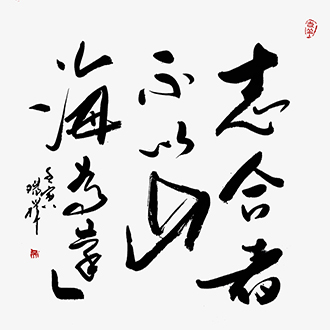 志合者
不以山
海为远
壬寅
瑞祥